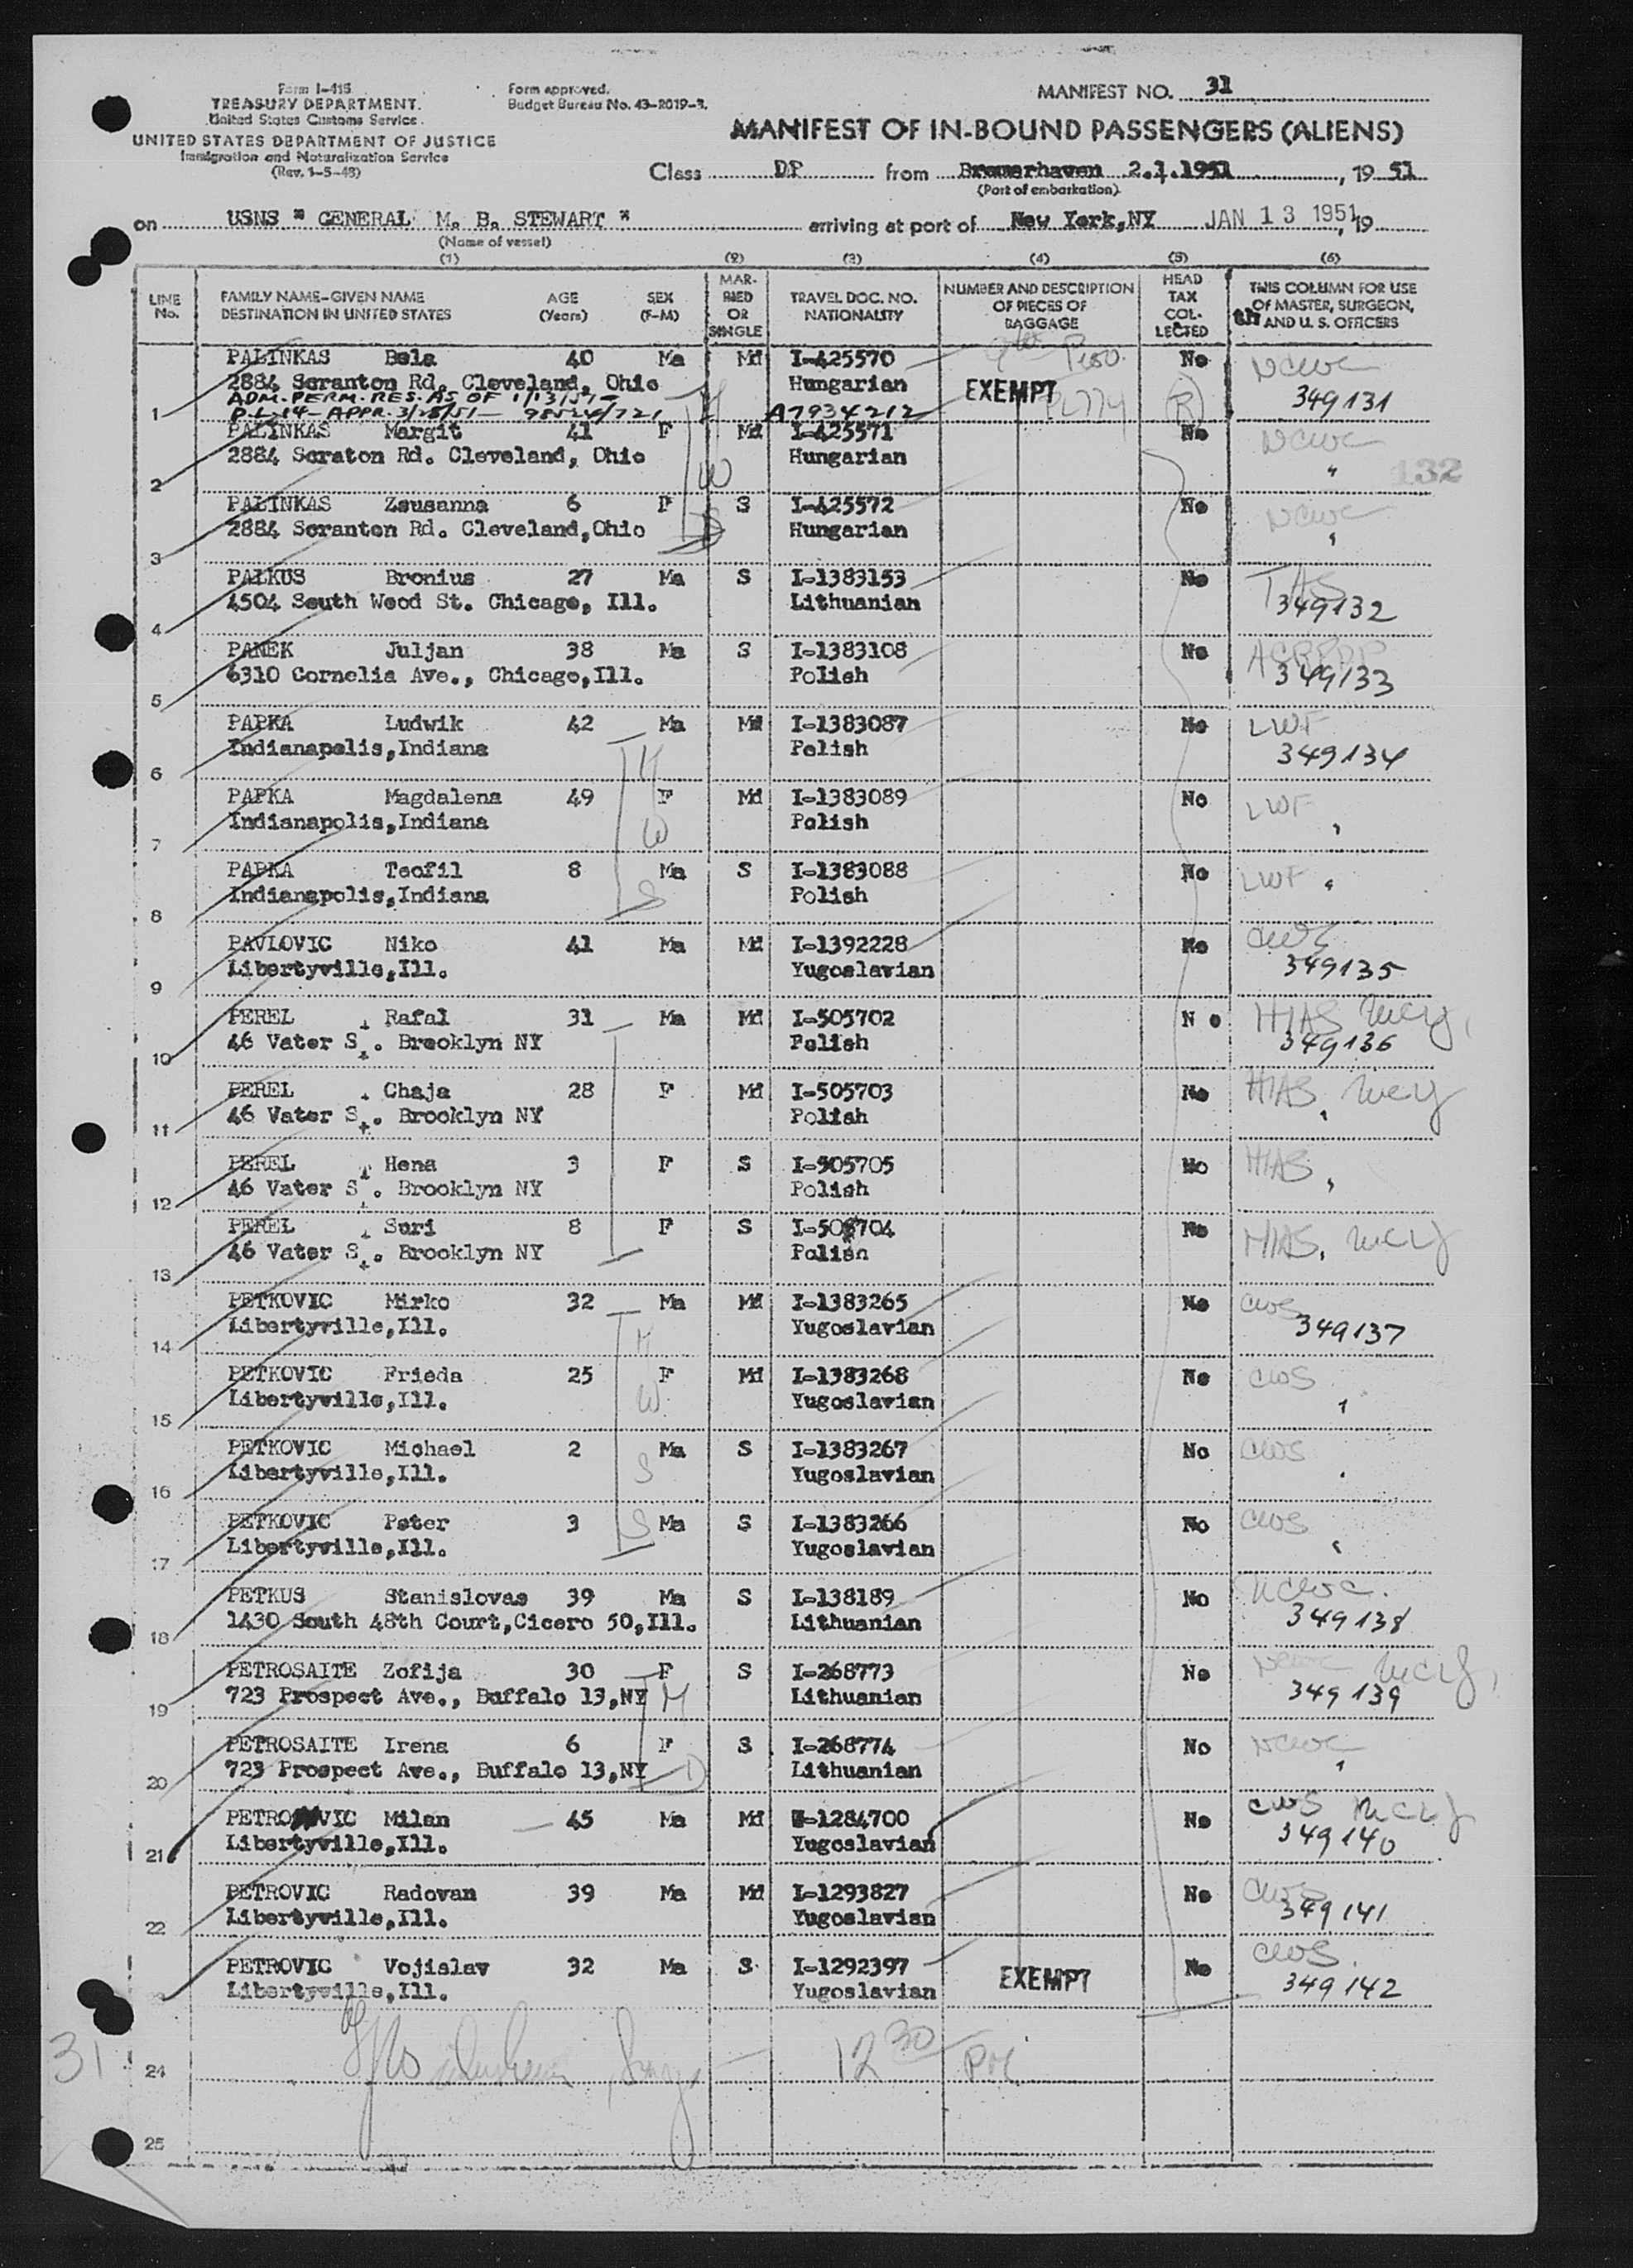 Form I-415
TREASURY DEPARTMENT.
United States Customs Service
UNITED STATES DEPARTMENT OF JUSTICE
Immigration and Naturalization Service
(Rev. 1-5-48)
Form approved.
Budget Bureau No. 43-R019-3.
MANIFEST NO. 31
MANIFEST OF IN-BOUND PASSENGERS (ALIENS)
Class DP from Bremerhaven 2.1.1951, 19 51
(Port of embarkation)
on USNS " GENERAL M. B. STEWART " arriving at port of New York,NY JAN 13 1951, 19
(Name of vessel)
(1) (2) (3) (4) (5) (6)
LINE No. FAMILY NAME-GIVEN NAME DESTINATION IN UNITED STATES AGE (Years) SEX (F-M) MARRIED OR SINGLE TRAVEL DOC. NO. NATIONALITY NUMBER AND DESCRIPTION OF PIECES OF BAGGAGE HEAD TAX COLLECTED THIS COLUMN FOR USE OF MASTER, SURGEON, AND U. S. OFFICERS
PALINKAS Bela 40 Ma Md I-425570 No NCWC
2884 Scranton Rd. Cleveland, Ohio Hungarian EXEMPT 349131
ADM. PERM. RES. AS OF 1/13/51-
1 P.L.-14-APPR. 3/28/51- 98524/721 A7934212 PL774 R
PALINKAS Margit 41 F Md I-425571 No NCWC
2884 Scraton Rd. Cleveland, Ohio Hungarian " 132
2 W
PALINKAS Zsusanna 6 F S I-425572 No NCWC
2884 Scranton Rd. Cleveland,Ohio Hungarian "
3
PALKUS Bronius 27 Ma S I-1383153 No
4504 South Wood St. Chicago, Ill. Lithuanian 349132
4
PANEK Juljan 38 Ma S I-1383108 No
6310 Cornelia Ave., Chicago,Ill. Polish 349133
5
PAPKA Ludwik 42 Ma Md I-1383087 No LWF
Indianapolis,Indiana H Polish 349134
6
PAPKA Magdalena 49 F Md I-1383089 No LWF
Indianapolis,Indiana W Polish "
7
PAPKA Teofil 8 Ma S I-1383088 No LWF "
Indianapolis,Indiana S Polish
8
PAVLOVIC Niko 41 Ma Md I-1392228 No CWS
Libertyville,Ill. Yugoslavian 349135
9
PEREL Rafal 31 Ma Md I-505702 N o HIAS
46 Vater St. Brooklyn NY Polish 349136
10
PEREL Chaja 28 F Md I-505703 No HIAS
46 Vater St. Brooklyn NY Polish "
11
PEREL Hena 3 F S I-505705 No HIAS
46 Vater St. Brooklyn NY Polish "
12
PEREL Suri 8 F S I-505704 No HIAS
46 Vater St. Brooklyn NY Polish
13
PETKOVIC Mirko 32 Ma Md I-1383265 No CWS
Libertyville,Ill. H Yugoslavian 349137
14
PETKOVIC Frieda 25 F Md I-1383268 No CWS
Libertyville,Ill. W Yugoslavian "
15
PETKOVIC Michael 2 Ma S I-1383267 No CWS
Libertyville,Ill. S Yugoslavian "
16
PETKOVIC Peter 3 S Ma S I-1383266 No CWS
Libertyville,Ill. Yugoslavian "
17
PETKUS Stanislovas 39 Ma S I-138189 No NCWC
1430 South 48th Court,Cicero 50,Ill. Lithuanian 349138
18
PETROSAITE Zofija 30 F S I-268773 No NCWC
723 Prospect Ave., Buffalo 13,NY M Lithuanian 349139
19
PETROSAITE Irena 6 F S I-268774 No NCWC
723 Prospect Ave., Buffalo 13,NY D Lithuanian "
20
Milan 45 Ma Md I-1284700 No CWS
Libertyville,Ill. Yugoslavian 349140
21
PETROVIC Radovan 39 Ma Md I-1293827 No CWS
Libertyville,Ill. Yugoslavian 349141
22
PETROVIC Vojislav 32 Ma S I-1292397 No CWS
Libertyville,Ill. Yugoslavian EXEMPT 349142
31 12 30 PM
24
25